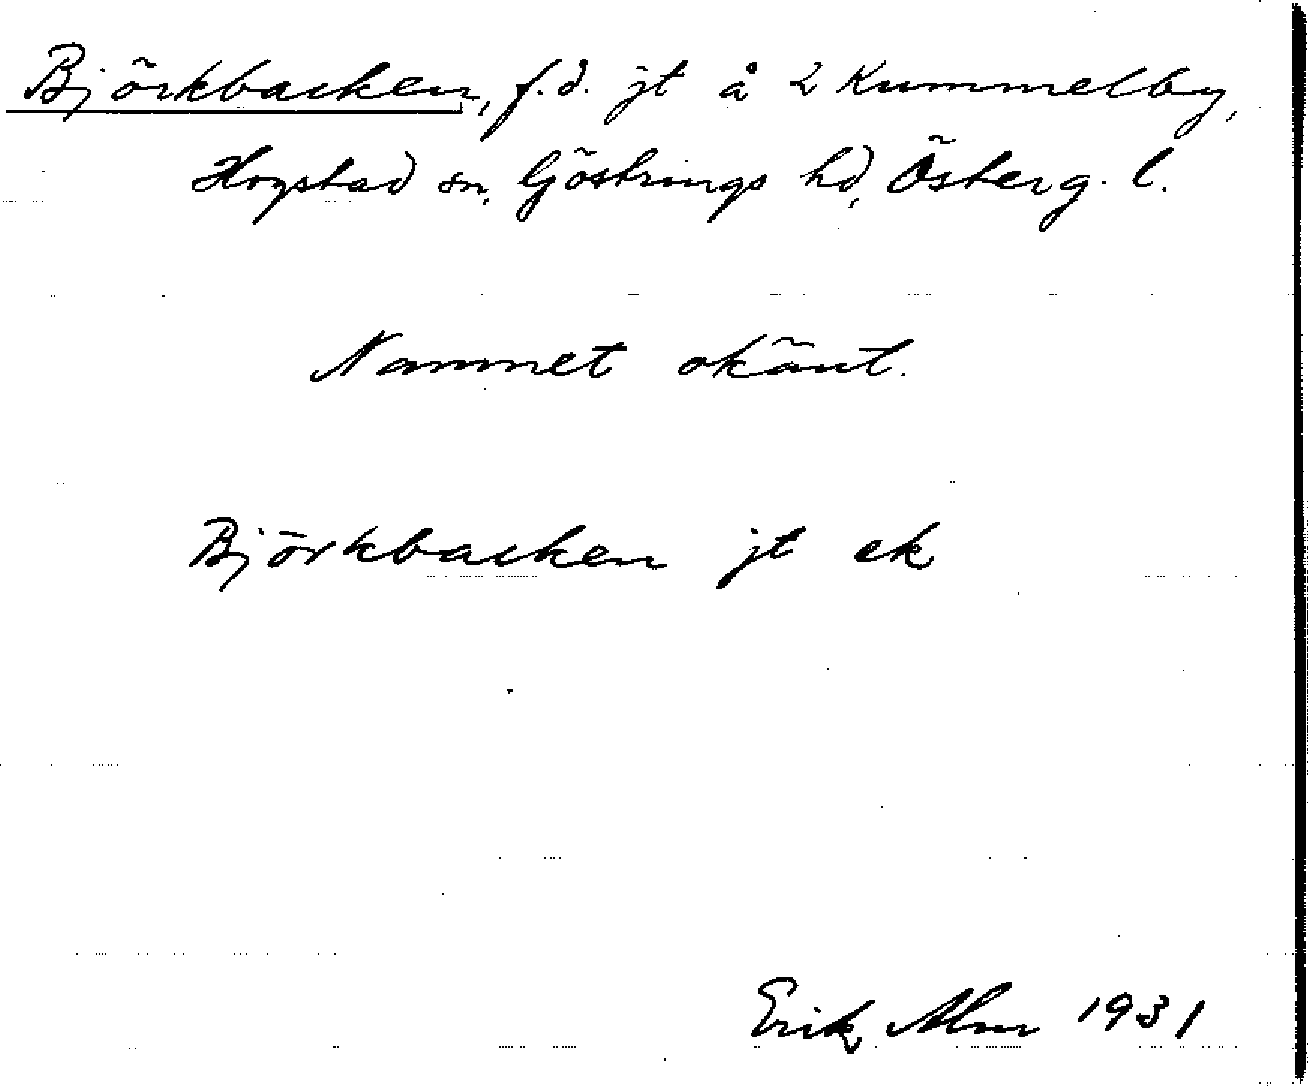 Björkbacken, f.d. jt å 2 Kummelby,
Hogstad sn, Göstrings hd, Österg. l.
Namnet okänt.
Björkbacken jt ek
Erik Alm 1931